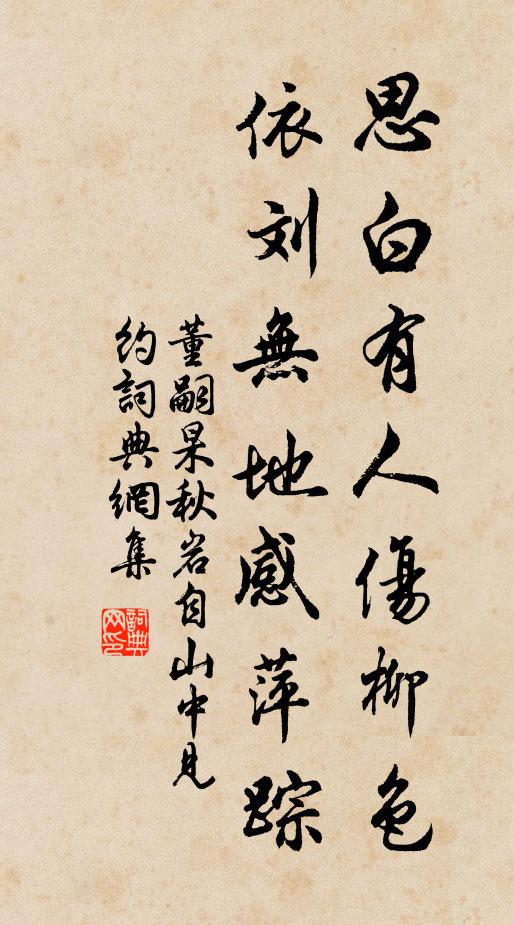 思白有人傷柳色
依刘無地感萍踪
董嗣杲秋岩自山中見
約詞典網集
詞典
网印